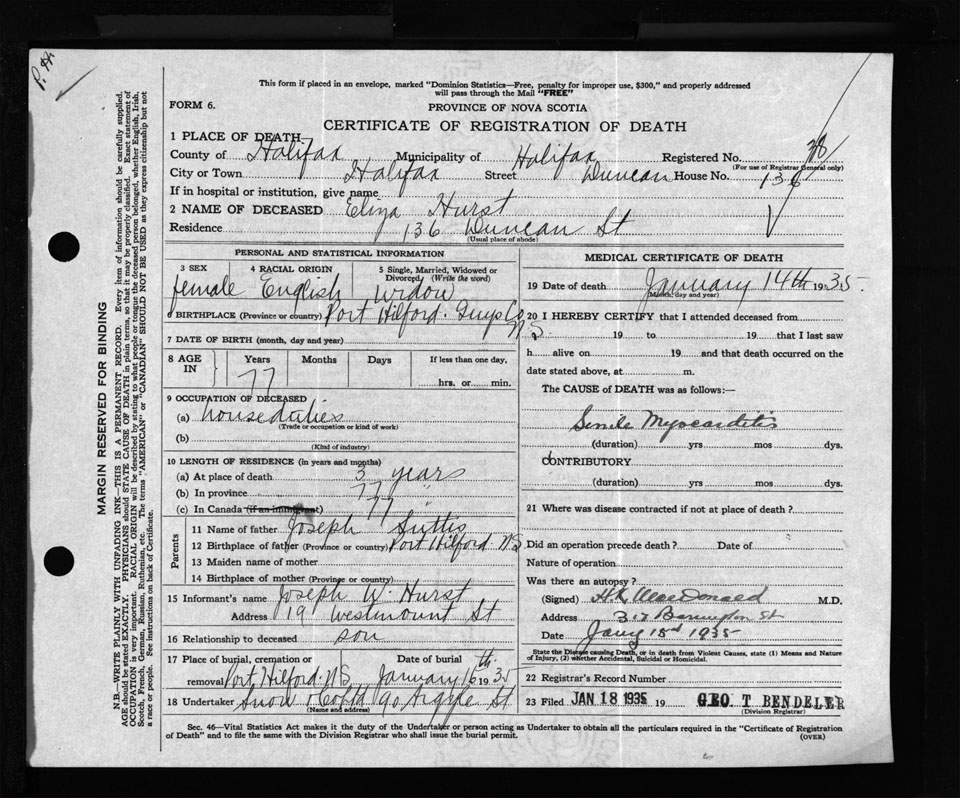 P. H.
This form if placed in an envelope, marked "Dominion Statistics—Free, penalty for improper use, $300," and properly addressed
will pass through the Mail "FREE"
FORM 6.
PROVINCE OF NOVA SCOTIA
CERTIFICATE OF REGISTRATION OF DEATH
1 PLACE OF DEATH—
County of Halifax Municipality of Halifax Registered No. 28
(For use of Registrar General only)
City or Town Halifax Street Duncan House No. 136
If in hospital or institution, give name
2 NAME OF DECEASED Eliza Hurst
Residence 136 Duncan St
(Usual place of abode)
PERSONAL AND STATISTICAL INFORMATION
3 SEX 4 RACIAL ORIGIN 5 Single, Married, Widowed or
Divorced (Write the word)
female English widow
6 BIRTHPLACE (Province or country) Port Hilford. Guys Co
N S
7 DATE OF BIRTH (month, day and year)
8 AGE IN Years Months Days If less than one day,
77 hrs. or min.
9 OCCUPATION OF DECEASED
(a) house duties
(Trade or occupation or kind of work)
(b)
(Kind of industry)
10 LENGTH OF RESIDENCE (in years and months)
(a) At place of death 3 years
(b) In province 77 "
(c) In Canada (if an immigrant) 77 "
Parents
11 Name of father Joseph Suttis
12 Birthplace of father (Province or country) Port Hilford NS
13 Maiden name of mother
14 Birthplace of mother (Province or country)
15 Informant's name Joseph W. Hurst
Address 19 Westmount St
16 Relationship to deceased son
17 Place of burial, cremation or Date of burial
removal Port Hilford. NS January 16th 1935
18 Undertaker Snow & Co Ltd 90 Argyle St
(Name and address)
MEDICAL CERTIFICATE OF DEATH
19 Date of death January 14th 1935.
(Month, day and year)
20 I HEREBY CERTIFY that I attended deceased from
19 to 19 that I last saw
h alive on 19 and that death occurred on the
date stated above, at m.
The CAUSE of DEATH was as follows:—
Senile Myocarditis
(duration) yrs mos dys.
CONTRIBUTORY
(duration) yrs mos dys.
21 Where was disease contracted if not at place of death?
Did an operation precede death? Date of
Nature of operation
Was there an autopsy?
(Signed) H.K. MacDonald M.D.
Address Barrington St
Date Jany 15 1935
State the Disease causing Death, or in death from Violent Causes, state (1) Means and Nature
of Injury, (2) whether Accidental, Suicidal or Homicidal.
22 Registrar's Record Number
23 Filed JAN 18 1935 19 GEO. T BENDELER
(Division Registrar)
Sec. 46—Vital Statistics Act makes it the duty of the Undertaker or person acting as Undertaker to obtain all the particulars required in the "Certificate of Registration
of Death" and to file the same with the Division Registrar who shall issue the burial permit.
(OVER)
MARGIN RESERVED FOR BINDING
N.B.—WRITE PLAINLY WITH UNFADING INK—THIS IS A PERMANENT RECORD. Every item of information should be carefully supplied.
AGE should be stated EXACTLY. PHYSICIANS should STATE CAUSE OF DEATH in plain terms, so that it may be properly classified. Exact statement of
OCCUPATION is very important. RACIAL ORIGIN will be described by stating to what people or tongue the deceased person belonged, whether English, Irish,
Scotch, French, German, Russian, Ruthenian, etc. The terms "AMERICAN" or "CANADIAN" SHOULD NOT BE USED as they express citizenship but not
a race or people. See instructions on back of Certificate.